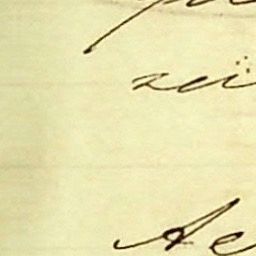 zei
Ae